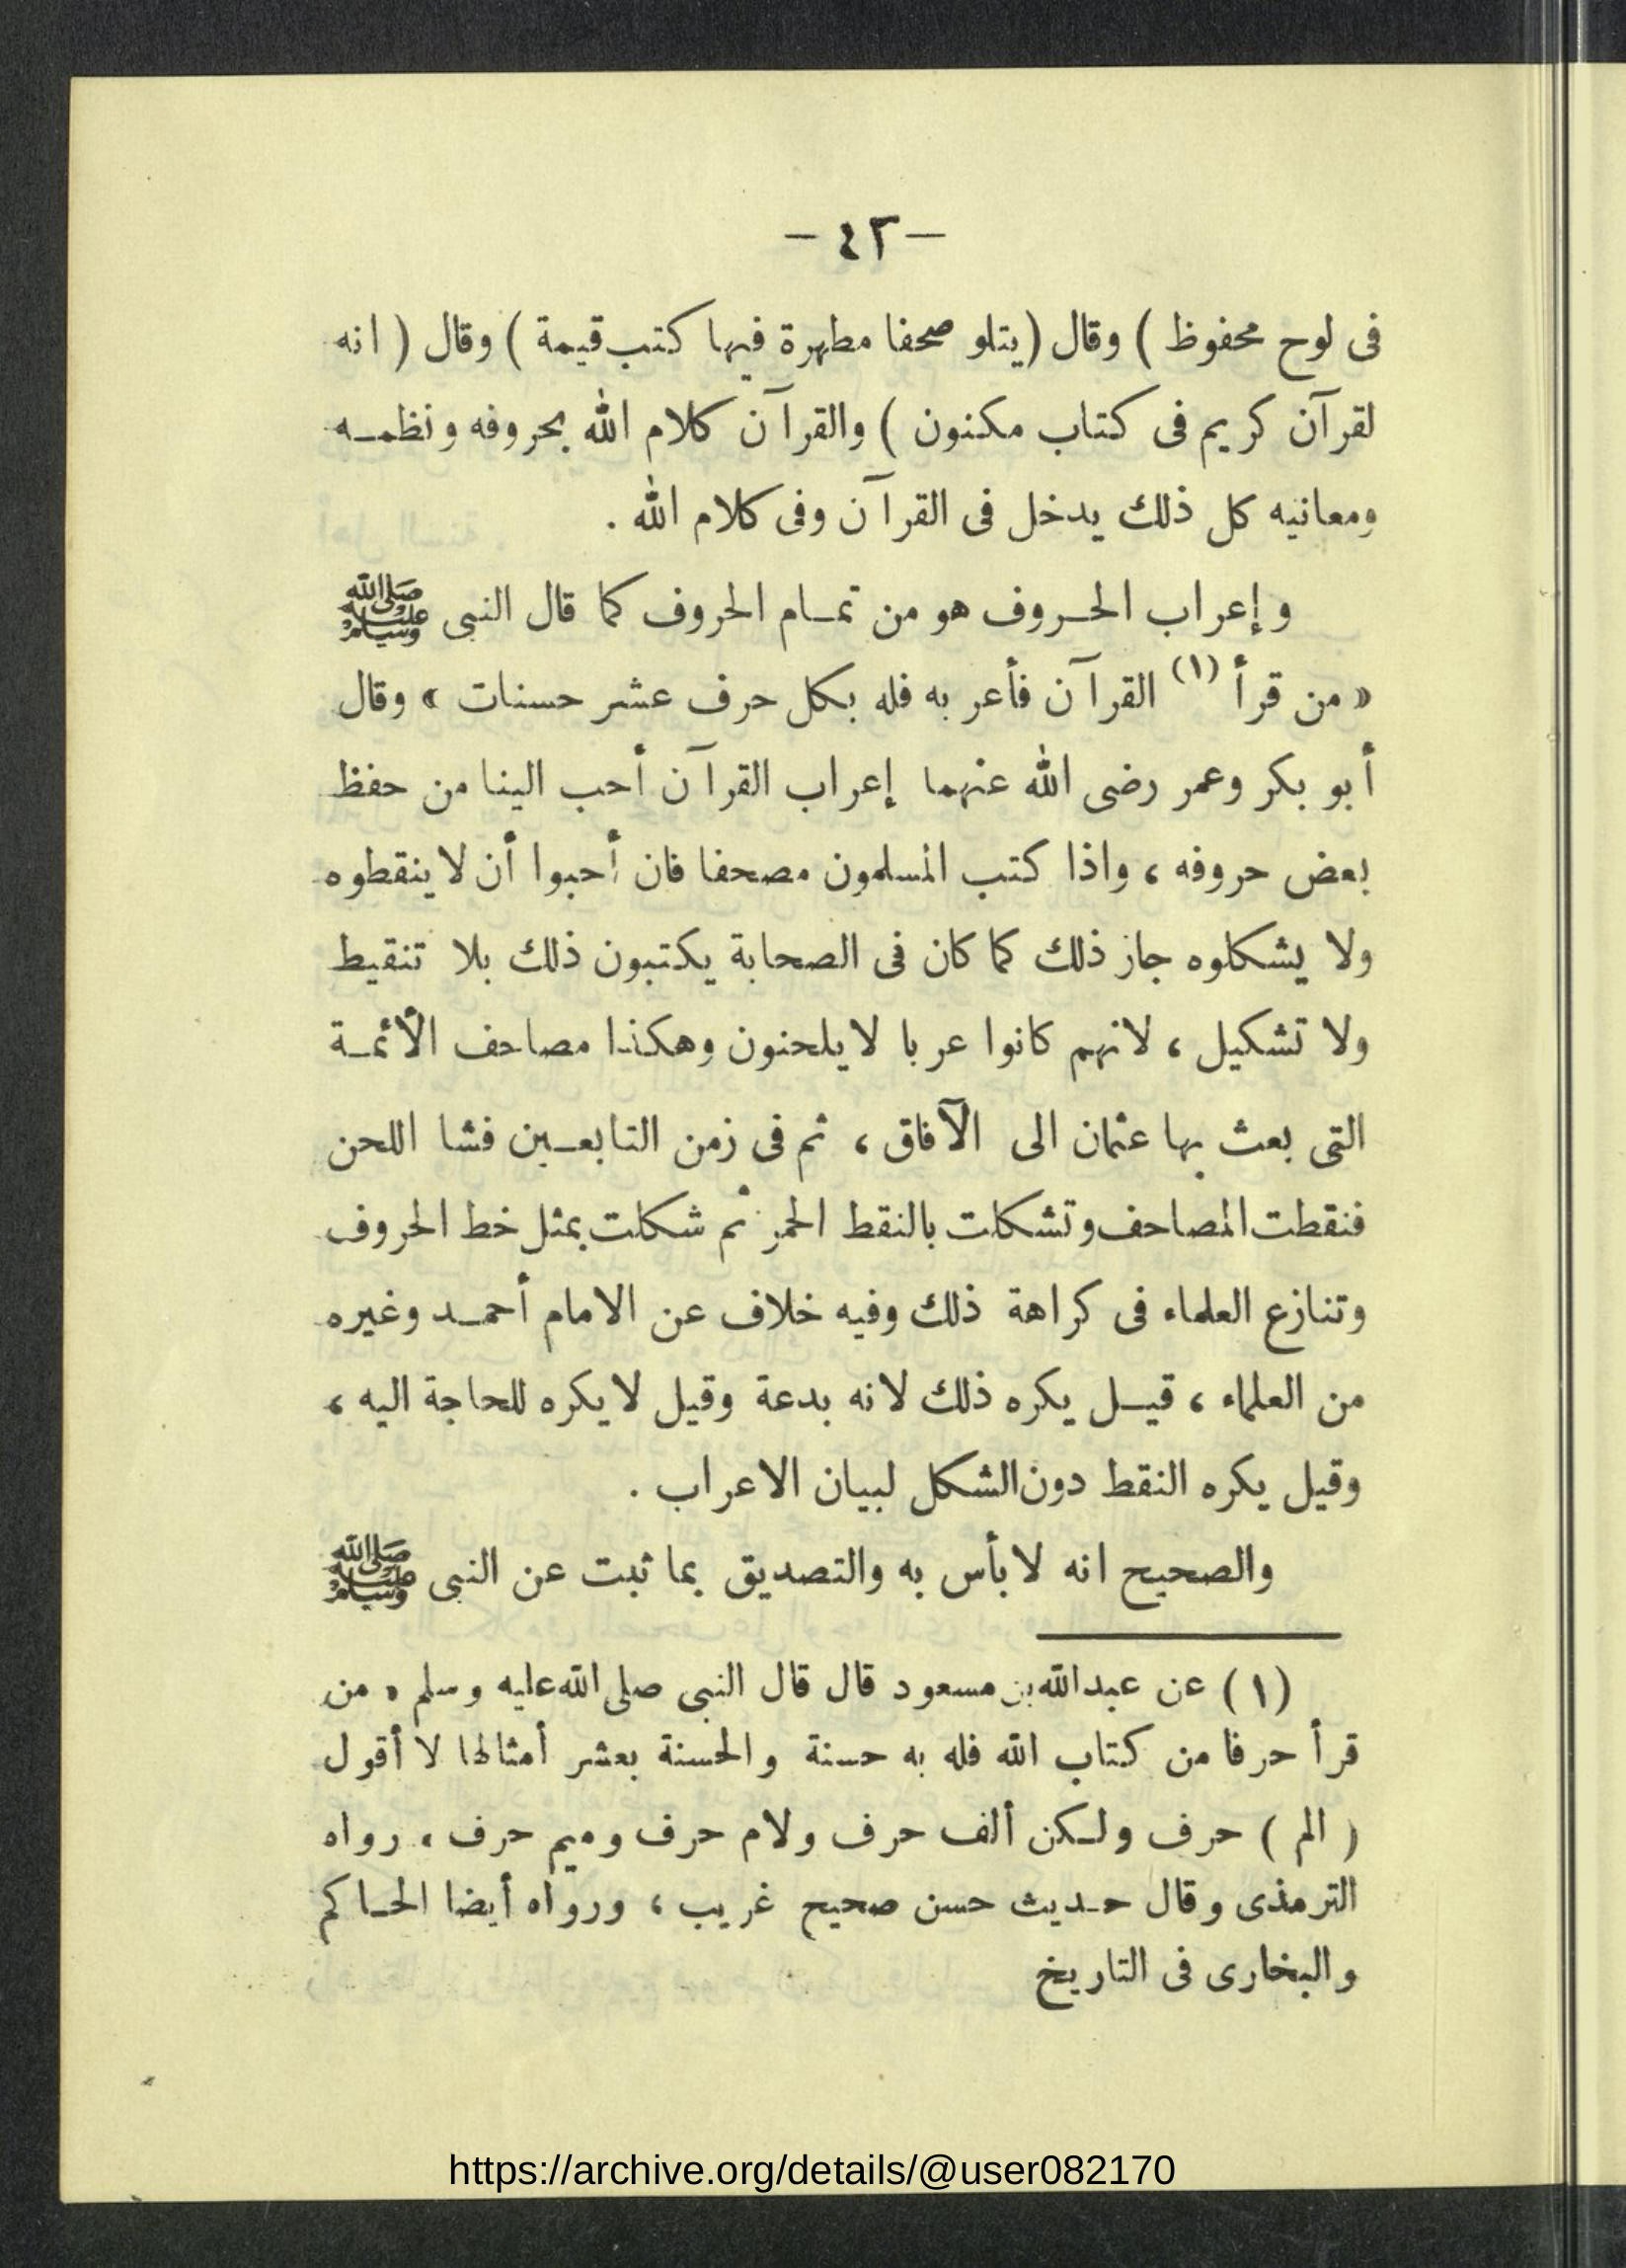 — ٤٢ —
فى لوح محفوظ ) وقال (يتلو صحفا مطهرة فيها كتب قيمة ) وقال ( انه
لقرآن كريم فى كتاب مكنون ) والقرآن كلام الله بحروفه ونظمـه
ومعانيه كل ذلك يدخل فى القرآن وفى كلام الله .
وإعراب الحـروف هو من تمـام الحروف كما قال النبى ﷺ
« من قرأ (١) القرآن فأعربه فله بكل حرف عشر حسنات » وقال
أبو بكر وعمر رضى الله عنهما إعراب القرآن أحب الينا من حفظ
بعض حروفه ، واذا كتب المسلمون مصحفا فان أحبوا أن لا ينقطوه
ولا يشكلوه جاز ذلك كما كان فى الصحابة يكتبون ذلك بلا تنقيط
ولا تشكيل ، لانهم كانوا عربا لا يلحنون وهكذا مصاحف الأئمـة
التى بعث بها عثمان الى الآفاق ، ثم فى زمن التابعـين فشا اللحن
فنقطت المصاحف وتشكلت بالنقط الحمر ثم شكلت بمثل خط الحروف
وتنازع العلماء فى كراهة ذلك وفيه خلاف عن الامام أحمـد وغيره
من العلماء ، قيـل يكره ذلك لانه بدعة وقيل لا يكره للحاجة اليه ،
وقيل يكره النقط دون الشكل لبيان الاعراب .
والصحيح انه لا بأس به والتصديق بما ثبت عن النبى ﷺ
(١) عن عبدالله بن مسعود قال قال النبى صلى الله عليه وسلم « من
قرأ حرفا من كتاب الله فله به حسنة والحسنة بعشر أمثالها لا أقول
( الم ) حرف ولـكن ألف حرف ولام حرف وميم حرف ، رواه
الترمذى وقال حـديث حسن صحيح غريب ، ورواه أيضا الحـاكم
والبخارى فى التاريخ
https://archive.org/details/@user082170